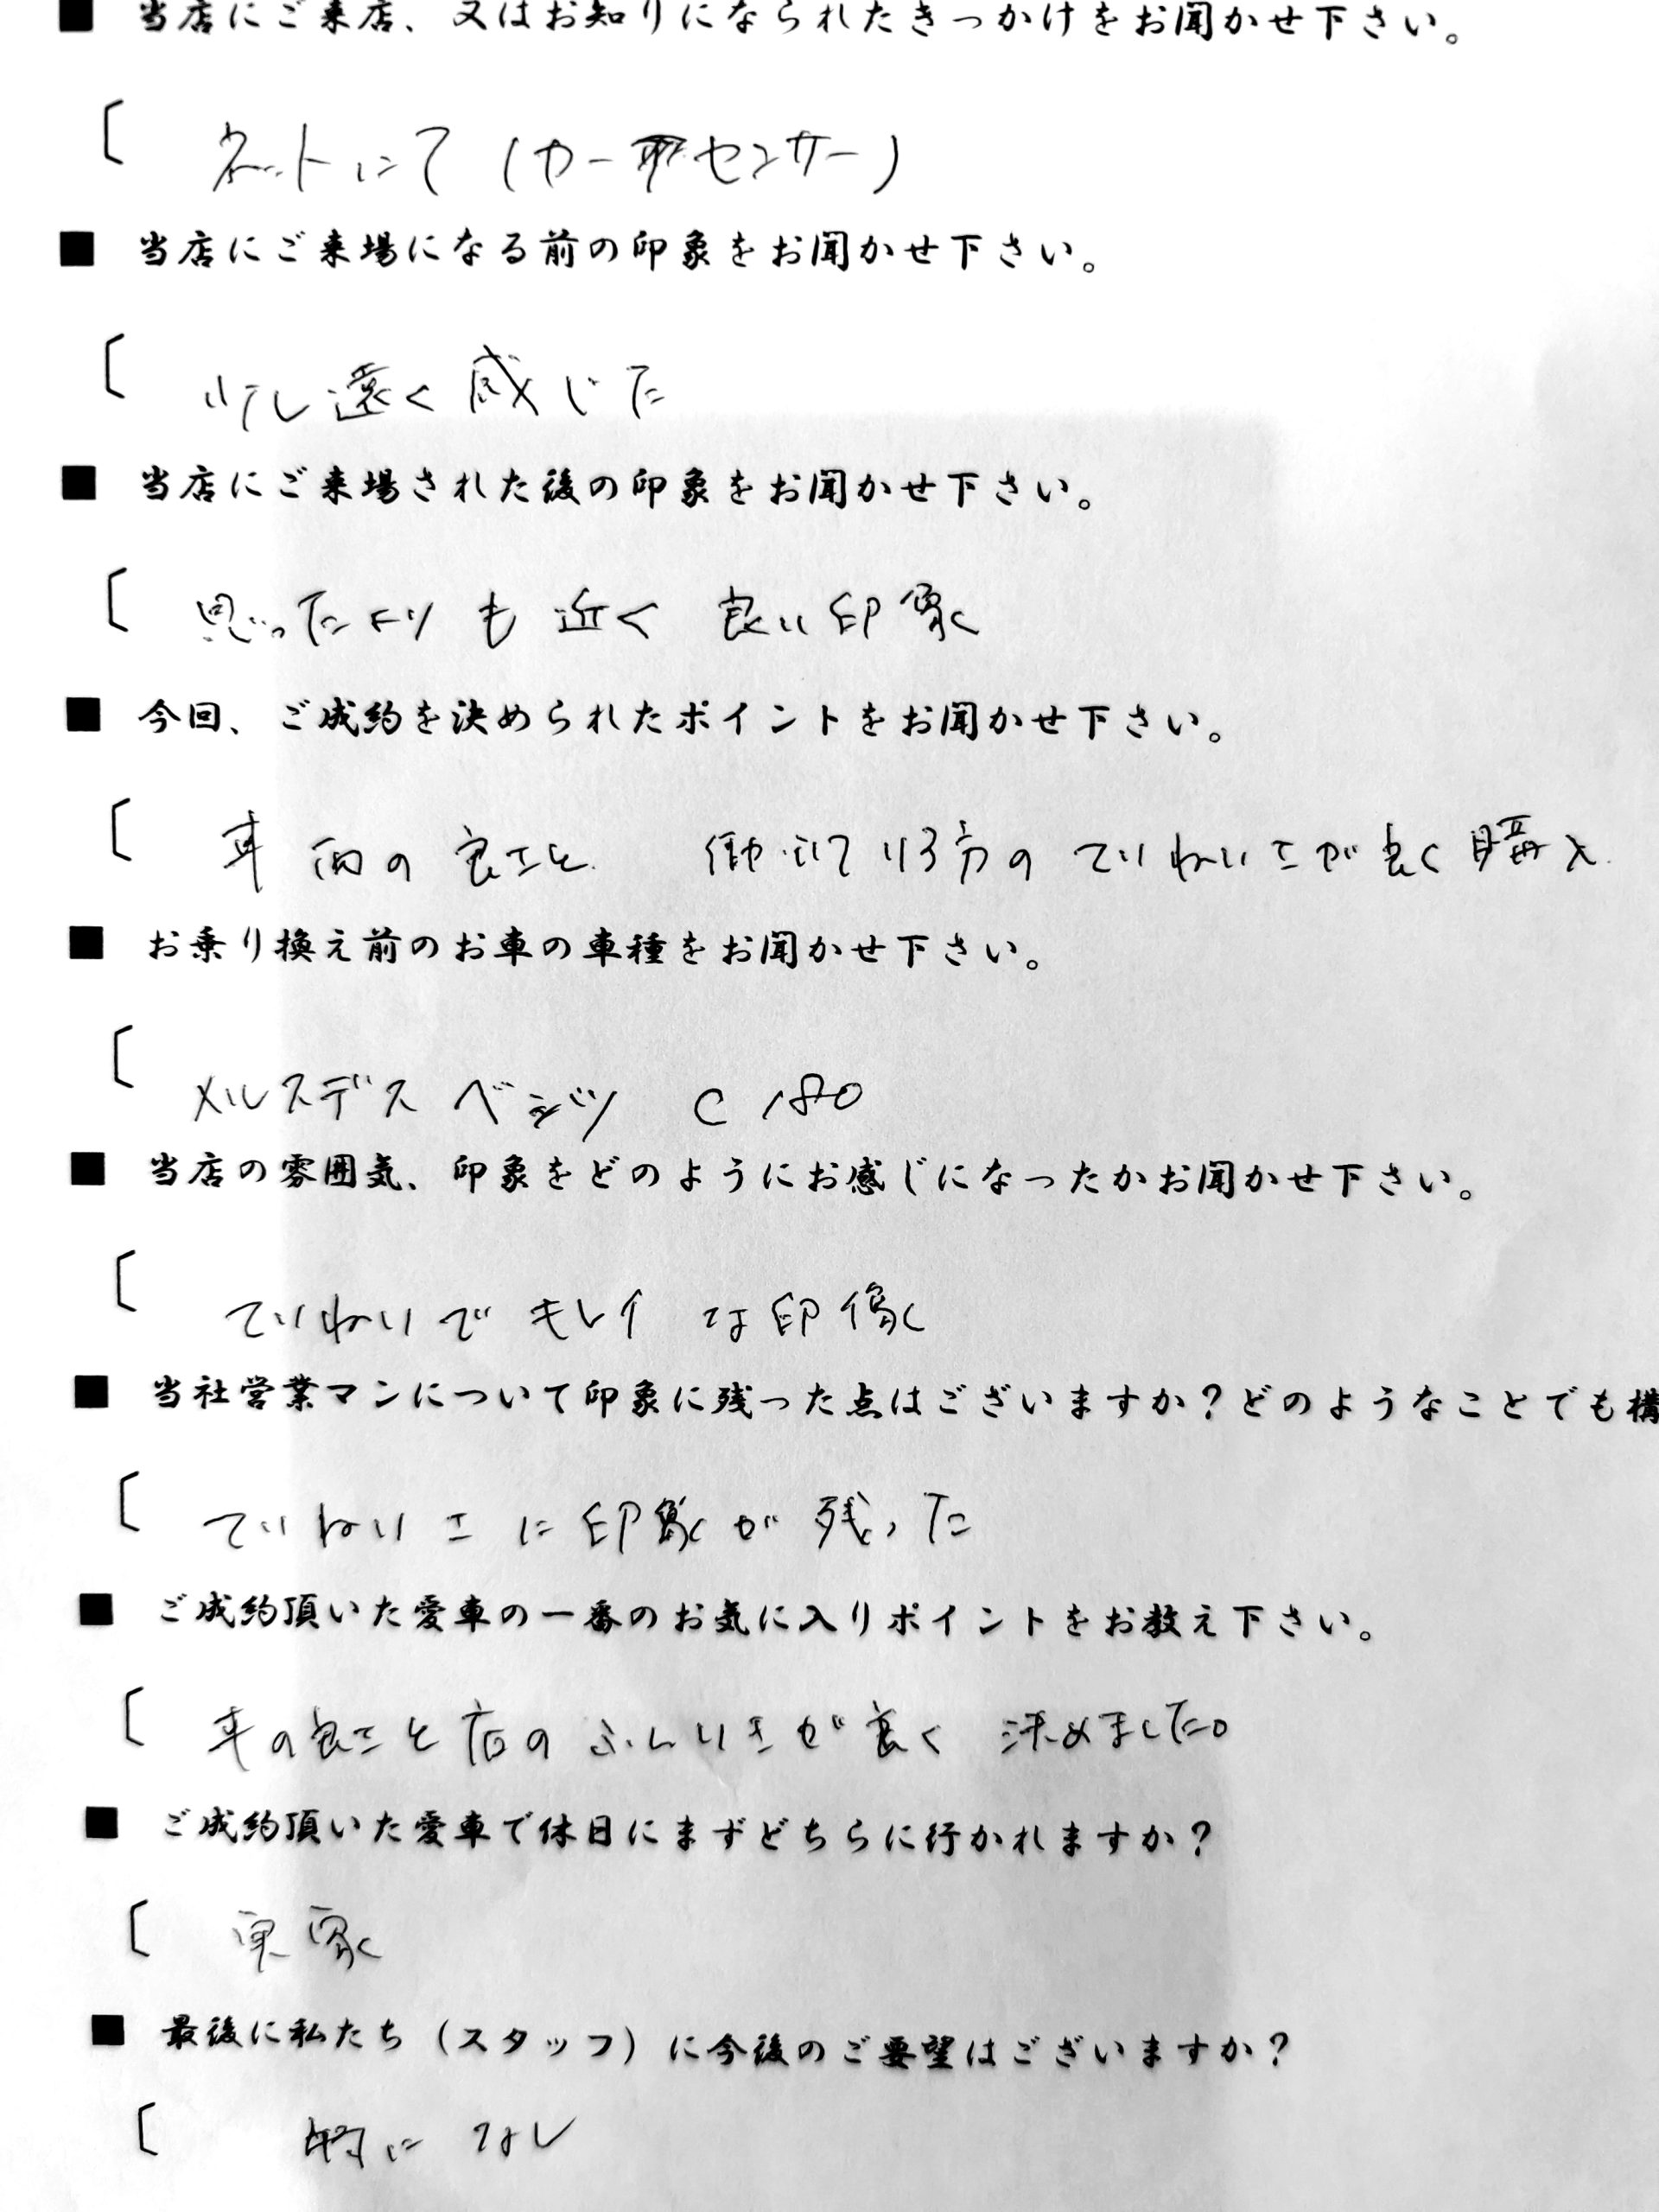 ■ 当店にご来店、又はお知りになられたきっかけをお聞かせ下さい。
〔 ネットにて (カーセンサー)
■ 当店にご来場になる前の印象をお聞かせ下さい。
〔 少し遠く感じた
■ 当店にご来場された後の印象をお聞かせ下さい。
〔 思ったよりも近く 良い印象
■ 今回、ご成約を決められたポイントをお聞かせ下さい。
〔 車両の良さと 働いている方のていねいさが良く購入
■ お乗り換え前のお車の車種をお聞かせ下さい。
〔 メルスデス ベンツ C180
■ 当店の雰囲気、印象をどのようにお感じになったかお聞かせ下さい。
〔 ていねいで キレイ な印像
■ 当社営業マンについて印象に残った点はございますか？どのようなことでも構
〔 ていねいさに印象が残った
■ ご成約頂いた愛車の一番のお気に入りポイントをお教え下さい。
〔 車の良さと店のふんいきが良く 決めました。
■ ご成約頂いた愛車で休日にまずどちらに行かれますか？
〔 実家
■ 最後に私たち（スタッフ）に今後のご要望はございますか？
〔 特に なし